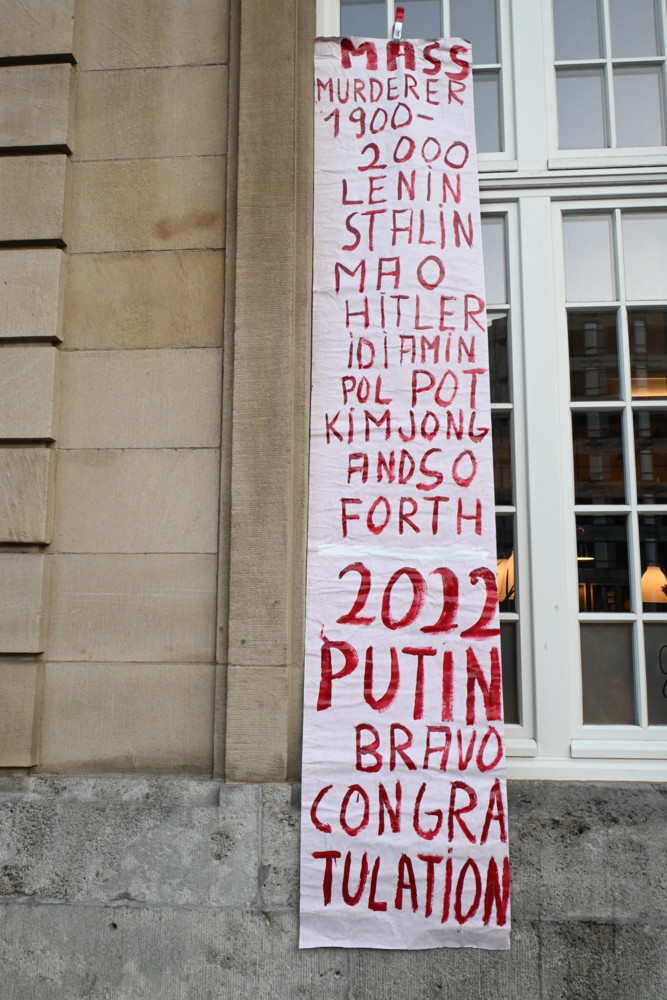 MASS
MURDERER
1900-
2000
LENIN
STALIN
MAO
HITLER
IDI AMIN
POL POT
KIM JONG
AND SO
FORTH
2022
PUTIN
BRAVO
CONGRA
TULATION